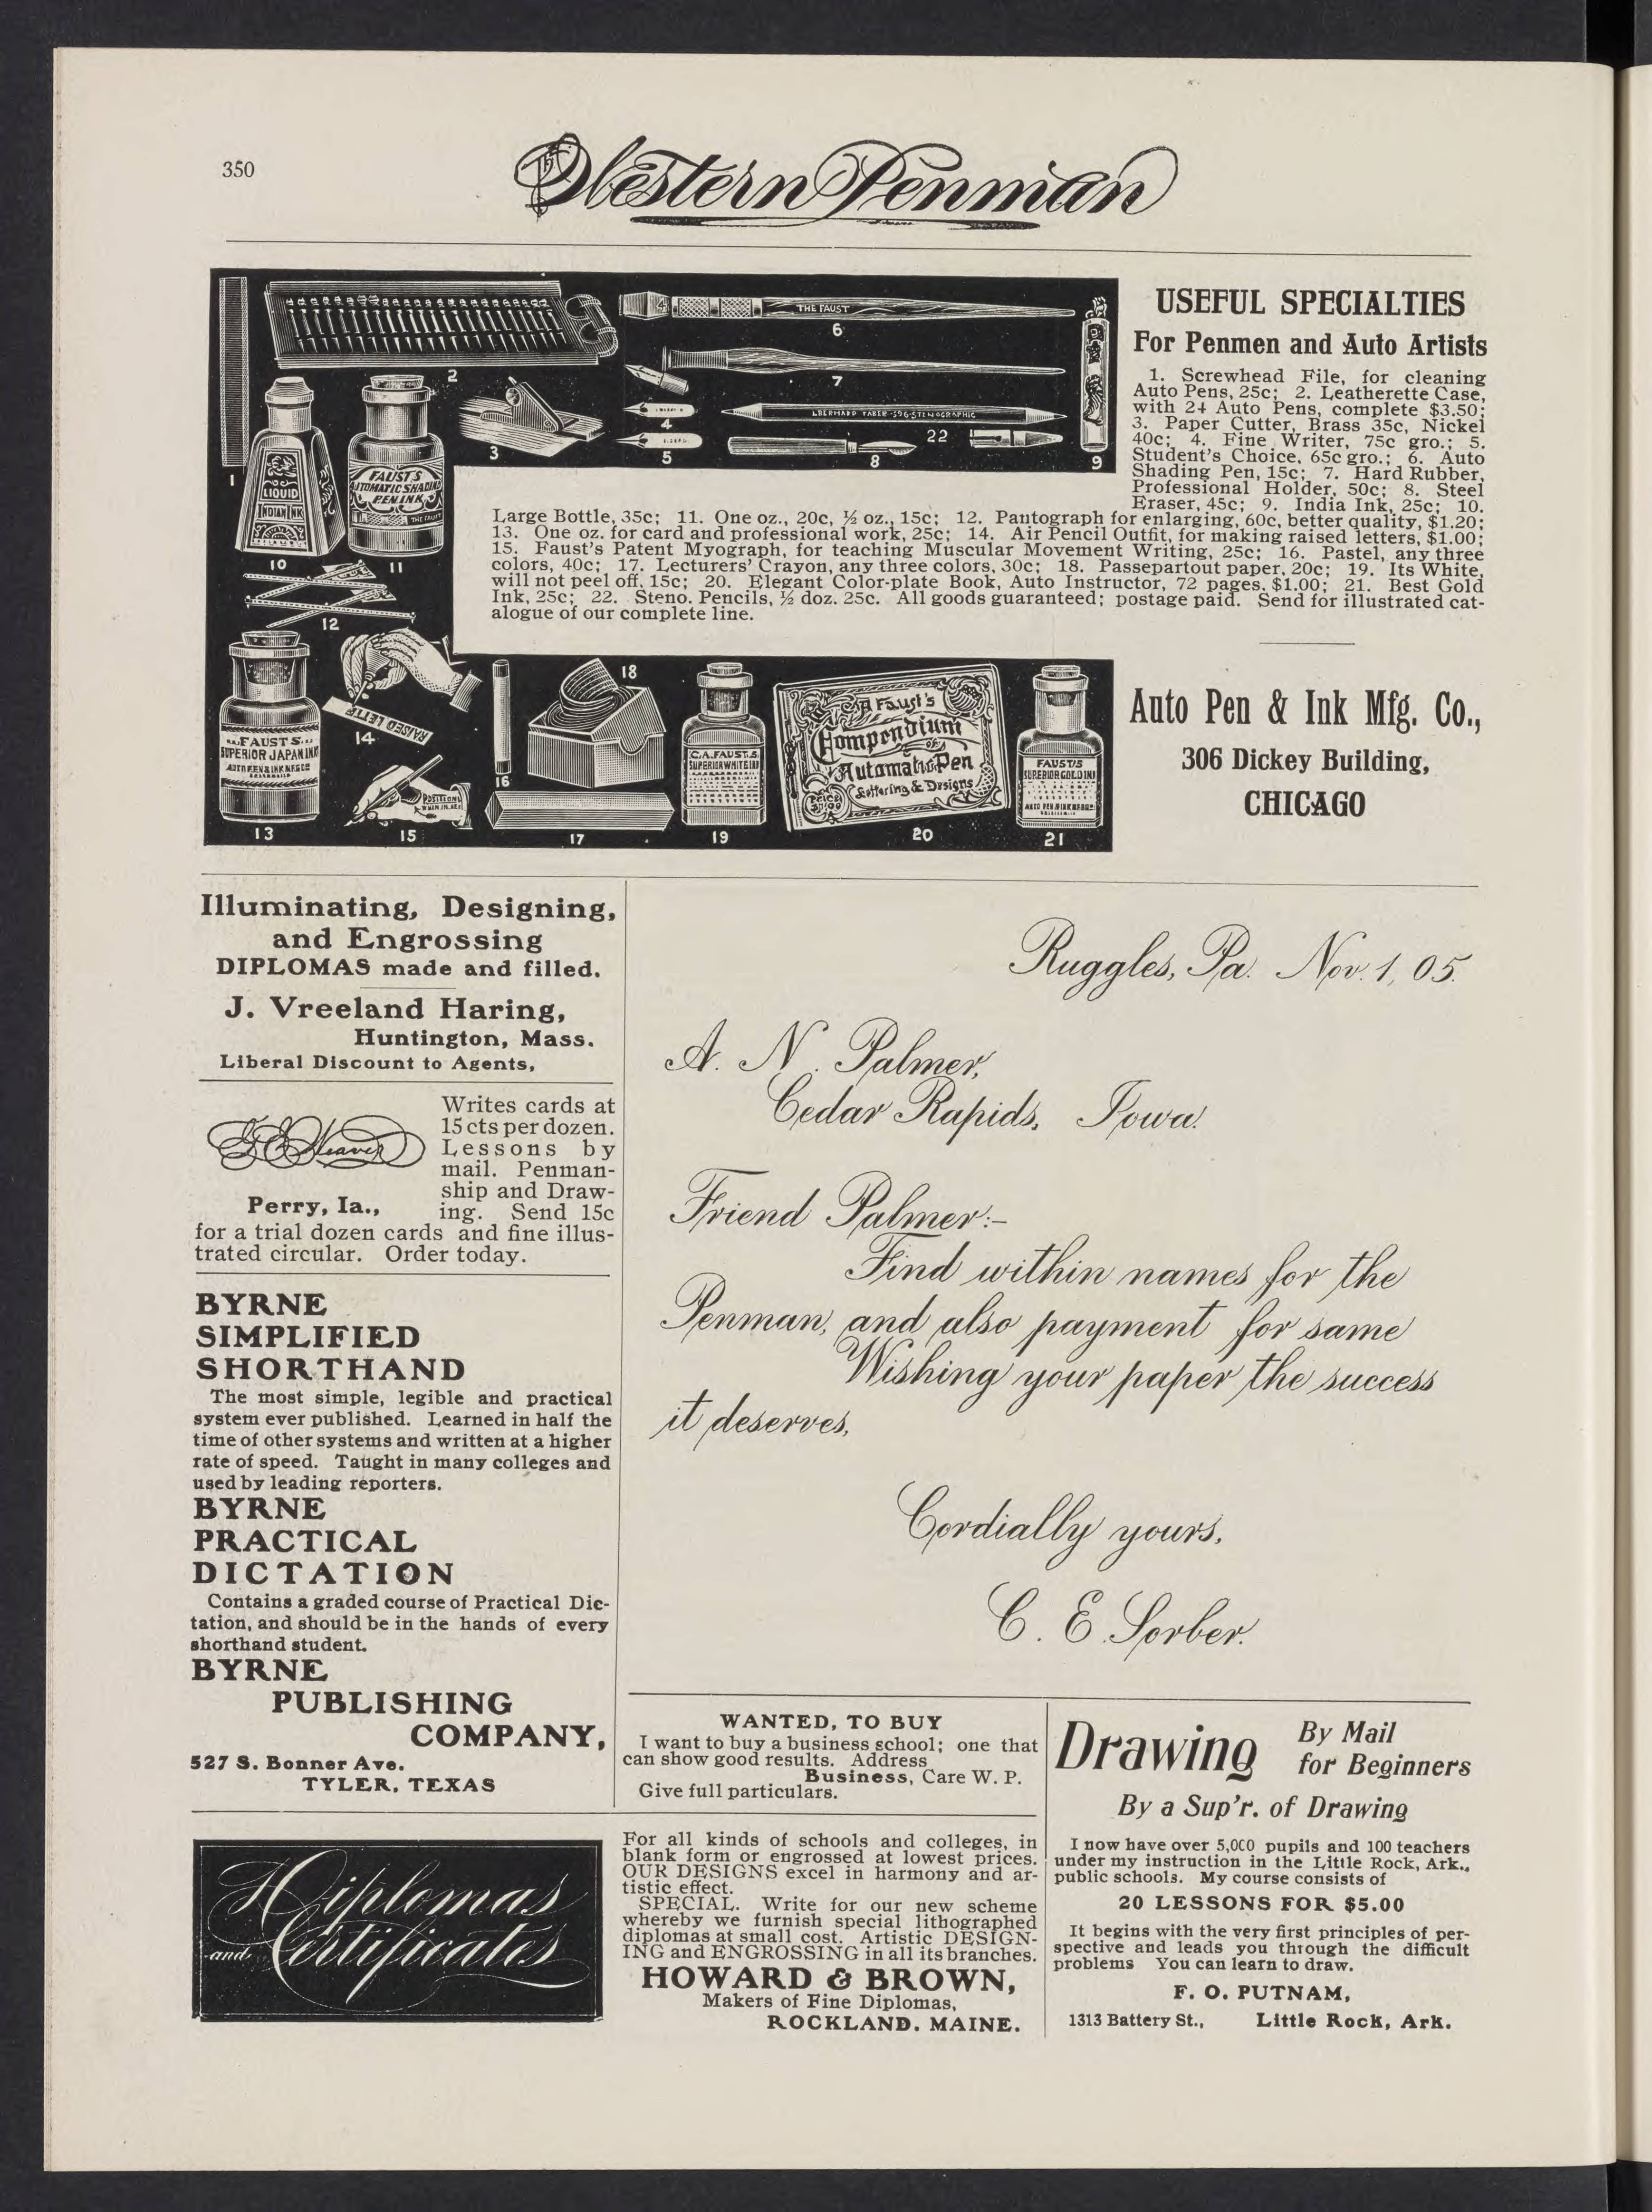 350
Western Penman
USEFUL SPECIALTIES
For Penmen and Auto Artists
1. Screwhead File, for cleaning
Auto Pens, 25c; 2. Leatherette Case,
with 24 Auto Pens, complete $3.50;
3. Paper Cutter, Brass 35c, Nickel
40c; 4. Fine Writer, 75c gro.; 5.
Student's Choice, 65c gro.; 6. Auto
Shading Pen, 15c; 7. Hard Rubber,
Professional Holder, 50c; 8. Steel
Eraser, 45c; 9. India Ink, 25c; 10.
Large Bottle, 35c; 11. One oz., 20c, ½ oz., 15c; 12. Pantograph for enlarging, 60c, better quality, $1.20;
13. One oz. for card and professional work, 25c; 14. Air Pencil Outfit, for making raised letters, $1.00;
15. Faust's Patent Myograph, for teaching Muscular Movement Writing, 25c; 16. Pastel, any three
colors, 40c; 17. Lecturers' Crayon, any three colors, 30c; 18. Passepartout paper, 20c; 19. Its White,
will not peel off, 15c; 20. Elegant Color-plate Book, Auto Instructor, 72 pages, $1.00; 21. Best Gold
Ink, 25c; 22. Steno. Pencils, ½ doz. 25c. All goods guaranteed; postage paid. Send for illustrated cat-
alogue of our complete line.
Auto Pen & Ink Mfg. Co.,
306 Dickey Building,
CHICAGO
1
2
3
4
5
THE FAUST
6
7
EBERHARD FABER·596·STENOGRAPHIC
22
8
9
LIQUID
INDIAN INK
10
FAUST'S
AUTOMATIC SHADING
PEN INK
11
12
FAUST'S
SUPERIOR JAPAN INK
13
RAISED LETTE
14
POSITION
15
16
17
18
C.A. FAUST'S
SUPERIOR WHITE INK
19
Faust's
Compendium
OF
Automatic Pen
Lettering & Designs
PRICE
$1.00
20
FAUST'S
SUPERIOR GOLD INK
21
Illuminating, Designing,
and Engrossing
DIPLOMAS made and filled.
J. Vreeland Haring,
Huntington, Mass.
Liberal Discount to Agents,
Writes cards at
15 cts per dozen.
Lessons by
mail. Penman-
ship and Draw-
ing. Send 15c
for a trial dozen cards and fine illus-
trated circular. Order today.
Weaver
Perry, Ia.,
BYRNE
SIMPLIFIED
SHORTHAND
The most simple, legible and practical
system ever published. Learned in half the
time of other systems and written at a higher
rate of speed. Taught in many colleges and
used by leading reporters.
BYRNE
PRACTICAL
DICTATION
Contains a graded course of Practical Dic-
tation, and should be in the hands of every
shorthand student.
BYRNE
PUBLISHING
COMPANY,
527 S. Bonner Ave.
TYLER, TEXAS
Ruggles, Pa. Nov. 1, 05.
A. N. Palmer,
Cedar Rapids, Iowa.
Friend Palmer:-
Find within names for the
Penman, and also payment for same
Wishing your paper the success
it deserves,
Cordially yours,
C. E. Sorber.
WANTED, TO BUY
I want to buy a business school; one that
can show good results. Address
Business, Care W. P.
Give full particulars.
Diplomas
and Certificates
For all kinds of schools and colleges, in
blank form or engrossed at lowest prices.
OUR DESIGNS excel in harmony and ar-
tistic effect.
SPECIAL. Write for our new scheme
whereby we furnish special lithographed
diplomas at small cost. Artistic DESIGN-
ING and ENGROSSING in all its branches.
HOWARD & BROWN,
Makers of Fine Diplomas,
ROCKLAND, MAINE.
Drawing By Mail
for Beginners
By a Sup'r. of Drawing
I now have over 5,000 pupils and 100 teachers
under my instruction in the Little Rock, Ark.,
public schools. My course consists of
20 LESSONS FOR $5.00
It begins with the very first principles of per-
spective and leads you through the difficult
problems You can learn to draw.
F. O. PUTNAM,
1313 Battery St., Little Rock, Ark.